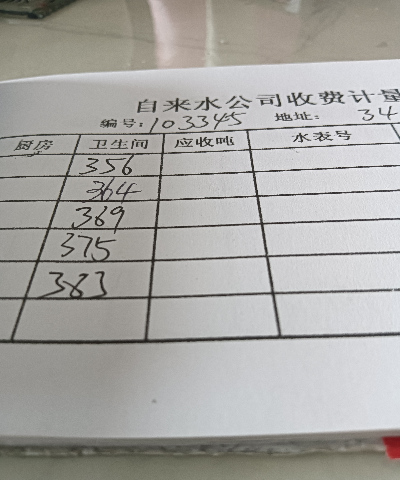 自来水公司收费计量
编号: 103345 地址: 34
厨房 卫生间 应收吨 水表号
356
364
369
375
383